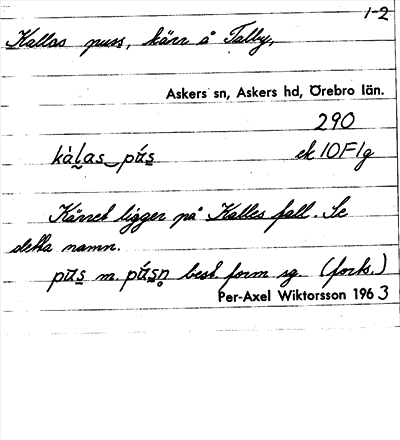 1-2
Kallas puss, kärr å Talby,
Askers sn, Askers hd, Örebro län.
290
kàlas pʉ́s ek 10F1g
Kärret ligger på Kalles fall. Se
detta namn.
pʉs m. pʉ́sn̥ best. form sg. (forts.)
Per-Axel Wiktorsson 1963